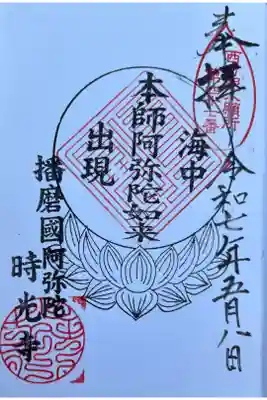 奉拝
令和七年五月八日
海中
本師阿弥陀如来
出現
播磨國阿弥陀
時光寺